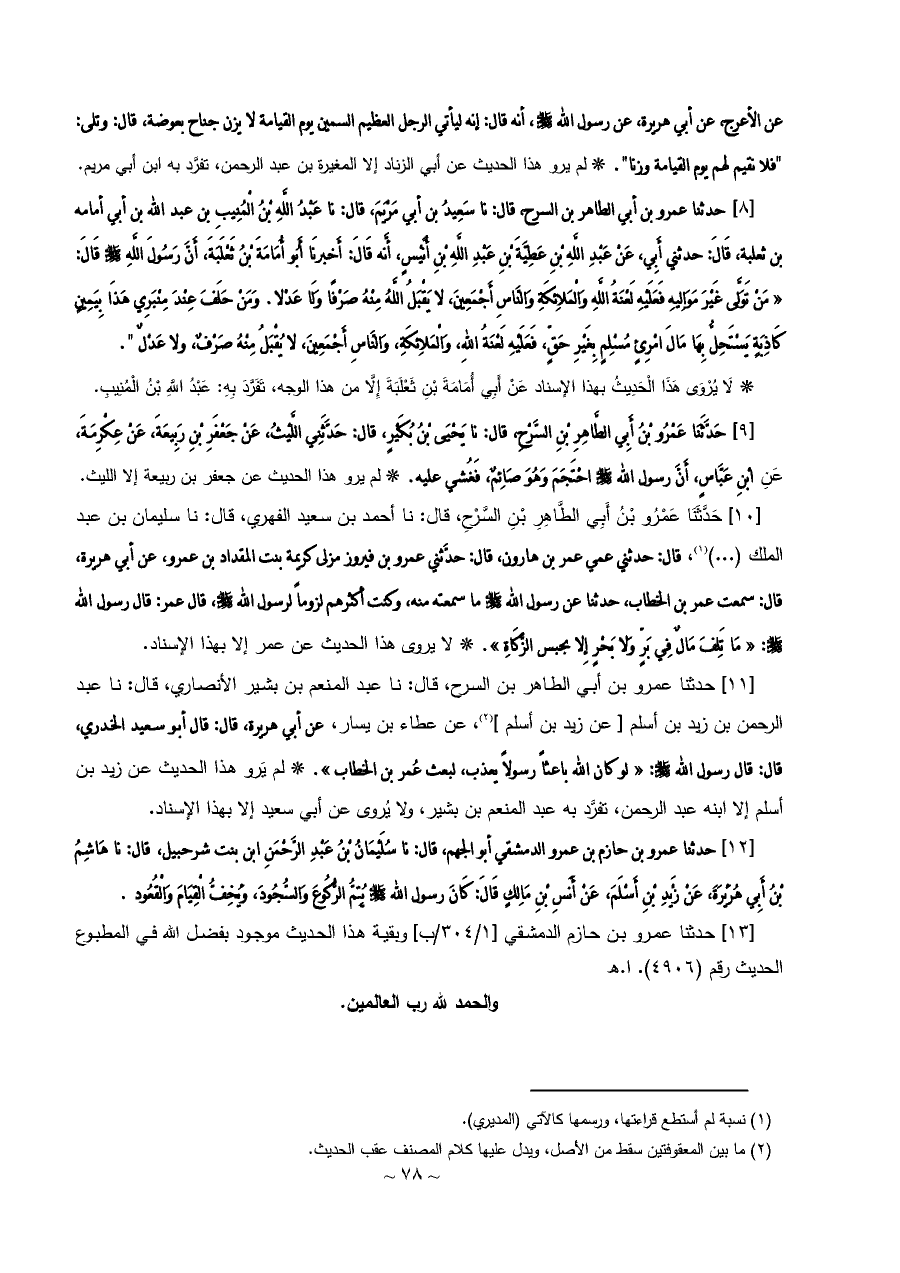 عن الأعرج، عن أبي هريرة، عن رسول الله ﷺ، أنه قال: إنه ليأتي الرجل العظيم السمين يوم القيامة لا يزن جناح بعوضة، قال: وتلى:
"فلا نقيم لهم يوم القيامة وزنا". * لم يرو هذا الحديث عن أبي الزناد إلا المغيرة بن عبد الرحمن، تفرَّد به ابن أبي مريم.
[٨] حدثنا عمرو بن أبي الطاهر بن السرح، قال: نا سَعِيدُ بن أبي مَرْيَمَ، قال: نا عَبْدُ اللَّهِ بْنُ الْمُنِيبِ بن عبد الله بن أبي أمامه
بن ثعلبة، قَالَ: حدثني أَبِي، عَنْ عَبْدِ اللَّهِ بْنِ عَطِيَّةَ بْنِ عَبْدِ اللَّهِ بْنِ أُنَيْسٍ، أَنَّه قَالَ: أَخبرنَا أَبُو أُمَامَةَ بْنُ ثَعْلَبَةَ، أَنَّ رَسُولَ اللَّهِ ﷺ قَالَ:
« مَنْ تَوَلَّى غَيْرَ مَوَالِيهِ فَعَلَيْهِ لَعْنَةُ اللَّهِ وَالْمَلَائِكَةِ وَالنَّاسِ أَجْمَعِينَ، لا يَقْبَلُ اللَّهُ مِنْهُ صَرْفًا وَلَا عَدْلا. وَمَنْ حَلَفَ عِنْدَ مِنْبَرِي هَذَا بِيَمِينٍ
كَاذِبَةٍ يَسْتَحِلُّ بِهَا مَالَ امْرِئٍ مُسْلِمٍ بِغَيْرِ حَقٍّ، فَعَلَيْهِ لَعْنَةُ اللهِ، وَالْمَلَائِكَةِ، وَالنَّاسِ أَجْمَعِينَ، لَا يُقْبَلُ مِنْهُ صَرْفٌ، ولا عَدْلٌ".
* لَا يُرْوَى هَذَا الْحَدِيثُ بهذا الإسناد عَنْ أَبِي أُمَامَةَ بْنِ ثَعْلَبَةَ إِلَّا من هذا الوجه، تفَرَّدَ بِهِ: عَبْدُ اللهِ بْنُ المُنِيبِ.
[٩] حَدَّثَنَا عَمْرُو بْنُ أَبِي الطَّاهِرِ بْنِ السَّرْحِ، قال: نا يَحْيَى بْنُ بُكَيْرٍ، قال: حَدَّثَنِي اللَّيْثُ، عَنْ جَعْفَرِ بْنِ رَبِيعَةَ، عَنْ عِكْرِمَةَ،
عَنِ ابْنِ عَبَّاسٍ، أَنَّ رسول الله ﷺ احْتَجَمَ وَهُوَ صَائِمٌ، فَغُشي عليه. * لم يرو هذا الحديث عن جعفر بن ربيعة إلا الليث.
[١٠] حَدَّثَنَا عَمْرُو بْنُ أَبِي الطَّاهِرِ بْنِ السَّرْحِ، قال: نا أحمد بن سعيد الفهري، قال: نا سليمان بن عبد
الملك (...)(١)، قال: حدثني عمي عمر بن هارون، قال: حدَّثني عمرو بن فيروز مزلى كريمة بنت المقداد بن عمرو، عن أبي هريرة،
قال: سمعت عمر بن الخطاب، حدثنا عن رسول الله ﷺ ما سمعته منه، وكنت أكثرهم لزوماً لرسول الله ﷺ، قال عمر: قال رسول الله
ﷺ: « مَا تَلِفَ مَالٌ فِي بَرٍّ وَلَا بَحْرٍ إِلا بحبس الزَّكَاةِ ». * لا يروى هذا الحديث عن عمر إلا بهذا الإسناد.
[١١] حدثنا عمرو بن أبي الطاهر بن السرح، قال: نا عبد المنعم بن بشير الأنصاري، قال: نا عبد
الرحمن بن زيد بن أسلم [ عن زيد بن أسلم ](٢)، عن عطاء بن يسار، عن أبي هريرة، قال: قال أبو سعيد الخدري،
قال: قال رسول الله ﷺ: « لو كان الله باعثاً رسولاً بعذب، لبعث عُمر بن الخطاب ». * لم يَرو هذا الحديث عن زيد بن
أسلم إلا ابنه عبد الرحمن، تفرَّد به عبد المنعم بن بشير، ولا يُروى عن أبي سعيد إلا بهذا الإسناد.
[١٢] حدثنا عمرو بن حازم بن عمرو الدمشقي أبو الجهم، قال: نا سُلَيْمَانُ بْنُ عَبْدِ الرَّحْمَنِ ابن بنت شرحبيل، قال: نا هَاشِمُ
بْنُ أَبِي هُرَيْرَةَ، عَنْ زَيْدِ بْنِ أَسْلَمَ، عَنْ أَنَسِ بْنِ مَالِكٍ قَالَ: كَانَ رسول الله ﷺ يُتِمُّ الرُّكُوعَ وَالسُّجُودَ، وَيُخِفُّ الْقِيَامَ وَالْقُعُودَ .
[١٣] حدثنا عمرو بن حازم الدمشقي [٣٠٤/١/ب] وبقية هذا الحديث موجود بفضل الله في المطبوع
الحديث رقم (٤٩٠٦). ا.هـ
والحمد لله رب العالمين.
(١) نسبة لم أستطع قراءتها، ورسمها كالآتي (المديري).
(٢) ما بين المعقوفتين سقط من الأصل، ويدل عليها كلام المصنف عقب الحديث.
~ ٧٨ ~